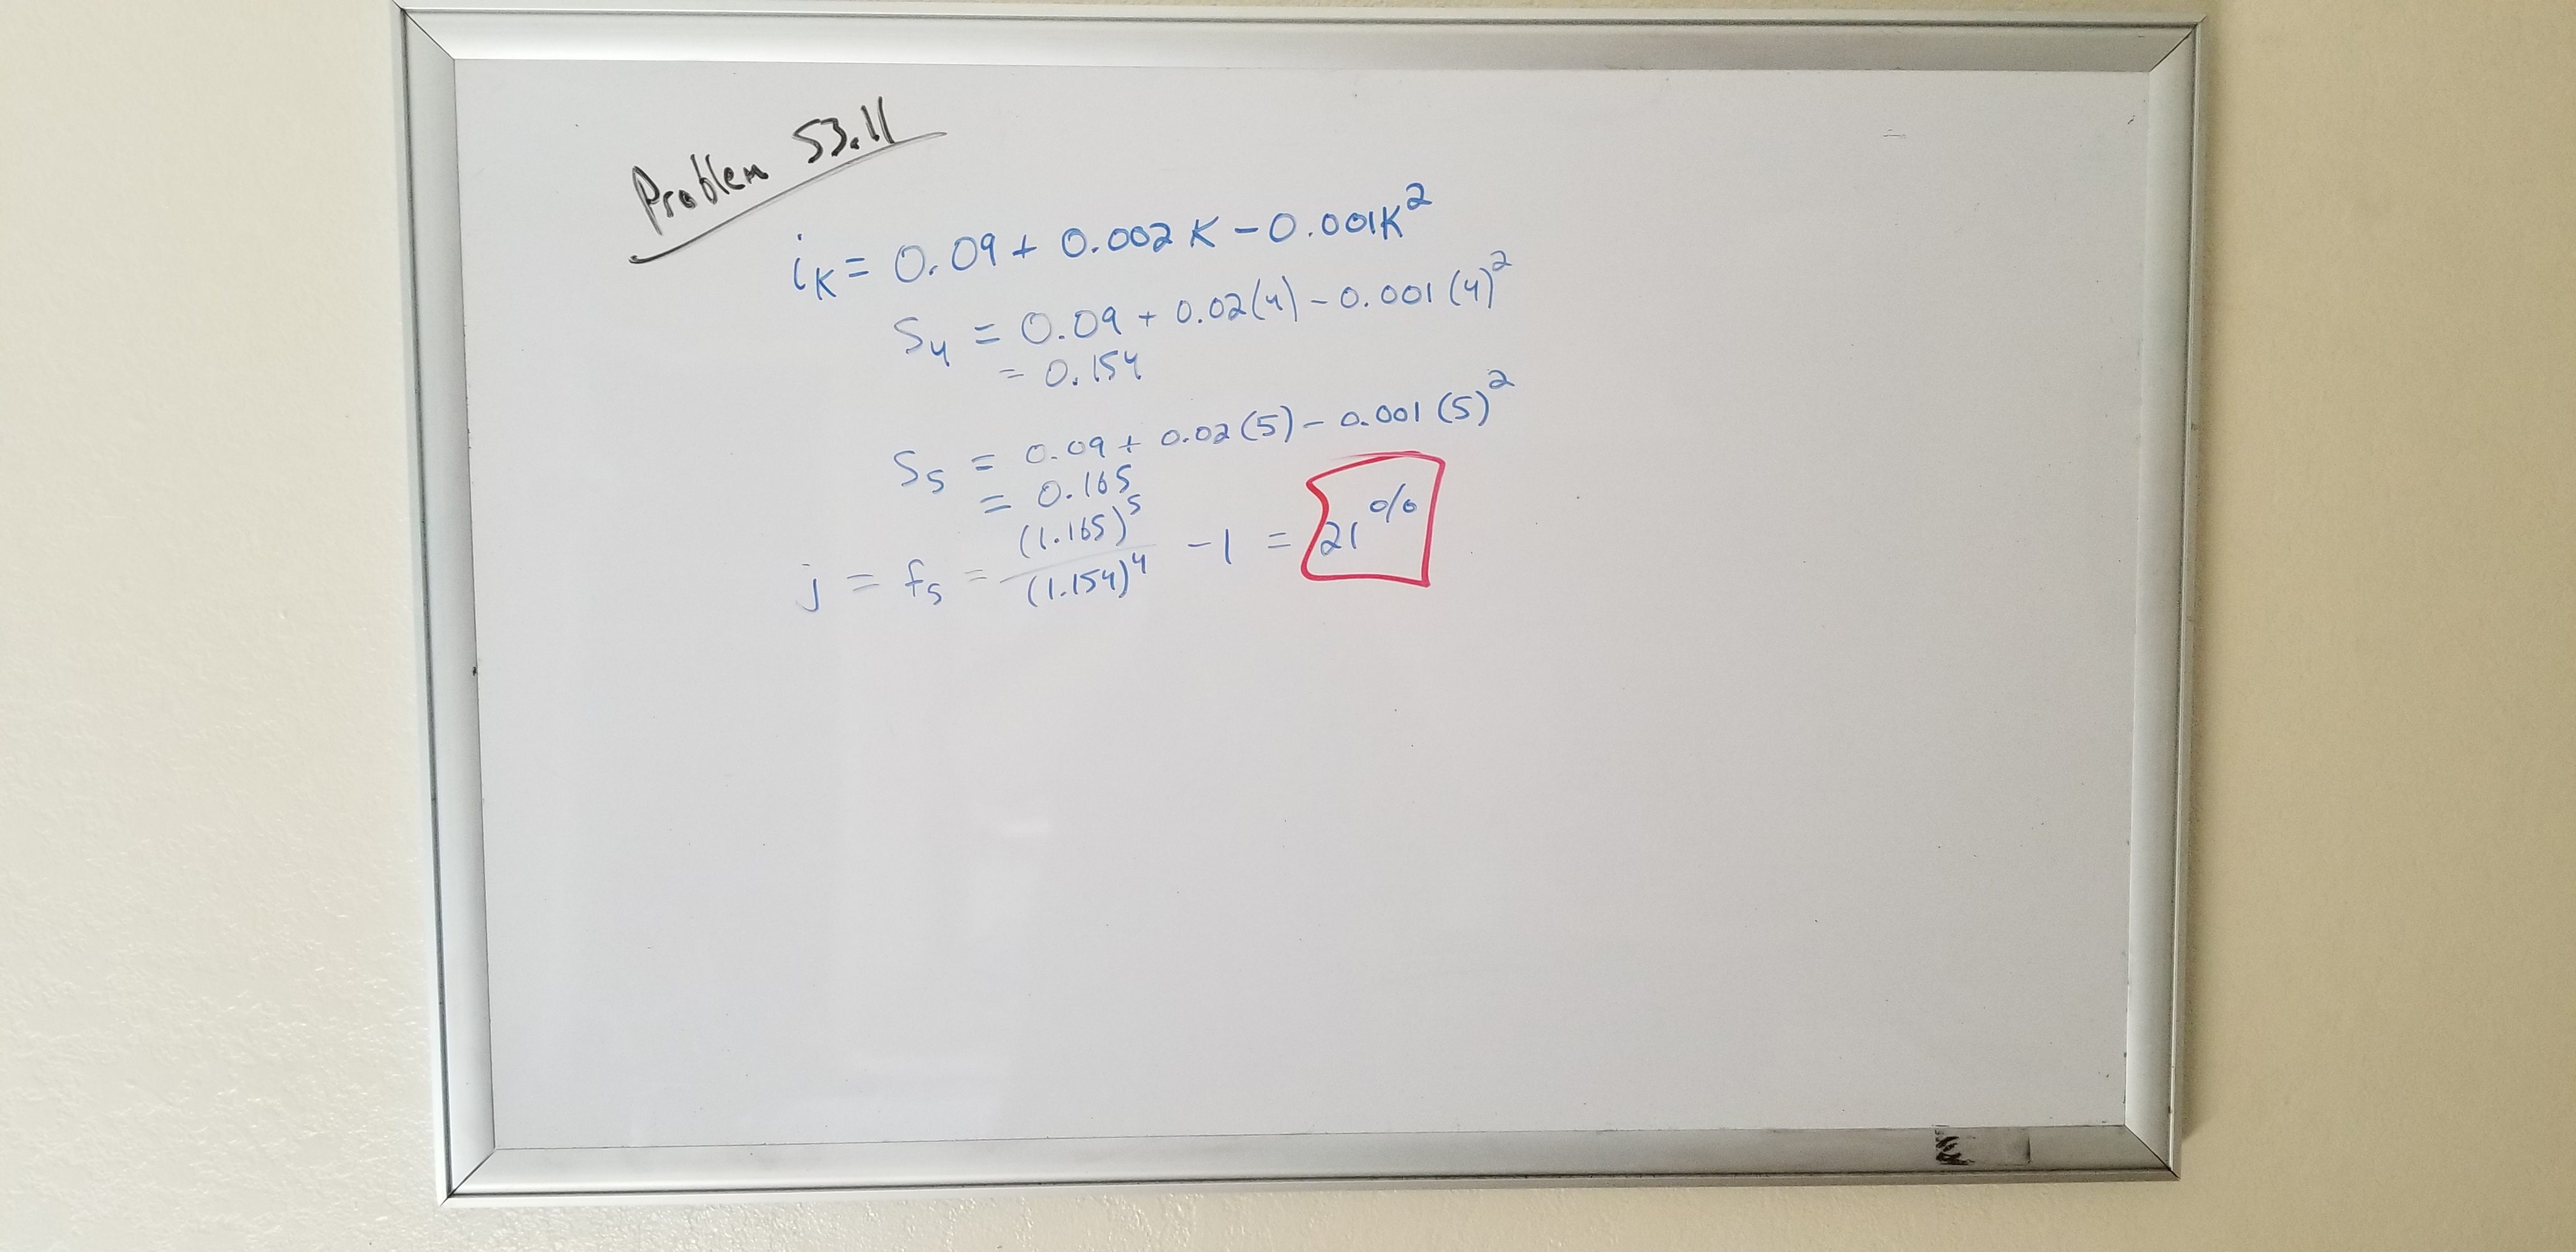 Problem 53.11
iK = 0.09 + 0.002K - 0.001K²
S₄ = 0.09 + 0.02(4) - 0.001(4)²
= 0.154
S₅ = 0.09 + 0.02(5) - 0.001(5)²
= 0.165
j = f₅ = (1.165)⁵ / (1.154)⁴ - 1 = 21%